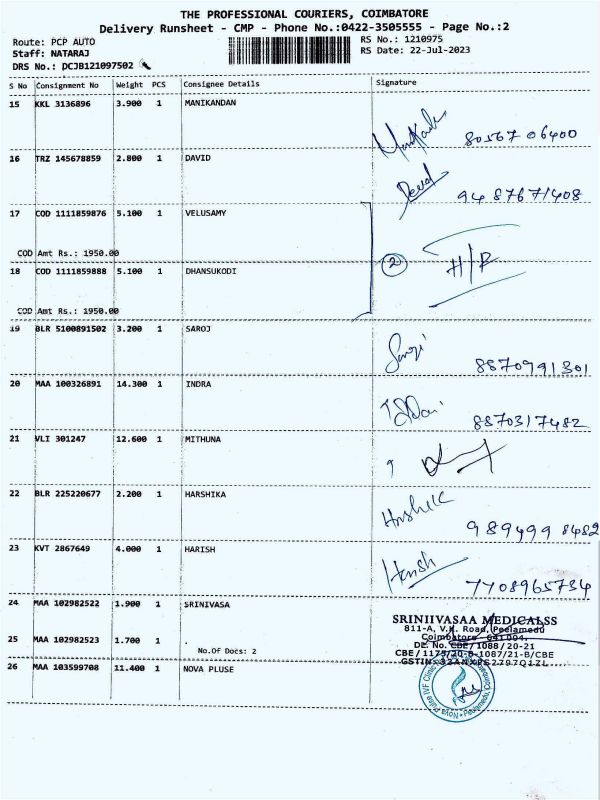 THE PROFESSIONAL COURIERS, COIMBATORE
Delivery Runsheet - CMP - Phone No.:0422-3505555 - Page No.:2
Route: PCP AUTO
Staff: NATARAJ
DRS No.: DCJB121097502
RS No.: 1210975
RS Date: 22-Jul-2023
S No Consignment No Weight PCS Consignee Details Signature
15 KKL 3136896 3.900 1 MANIKANDAN
80567 06400
16 TRZ 145678859 2.800 1 DAVID
David
9487671408
17 COD 1111859876 5.100 1 VELUSAMY
COD Amt Rs.: 1950.00
2 H/R
18 COD 1111859888 5.100 1 DHANSUKODI
COD Amt Rs.: 1950.00
19 BLR 5100891502 3.200 1 SAROJ
8870991301
20 MAA 100326891 14.300 1 INDRA
8870317482
21 VLI 301247 12.600 1 MITHUNA
22 BLR 225220677 2.200 1 HARSHIKA
9894998482
23 KVT 2867649 4.000 1 HARISH
Harish
7708965734
24 MAA 102982522 1.900 1 SRINIVASA
SRINIIVASAA MEDICALSS
811-A, V.K. Road, Peelamedu
Coimbatore - 641 004.
DL. No. CBE / 1088 / 20-21
25 MAA 102982523 1.700 1
No.Of Docs: 2
26 MAA 103599708 11.400 1 NOVA PLUSE